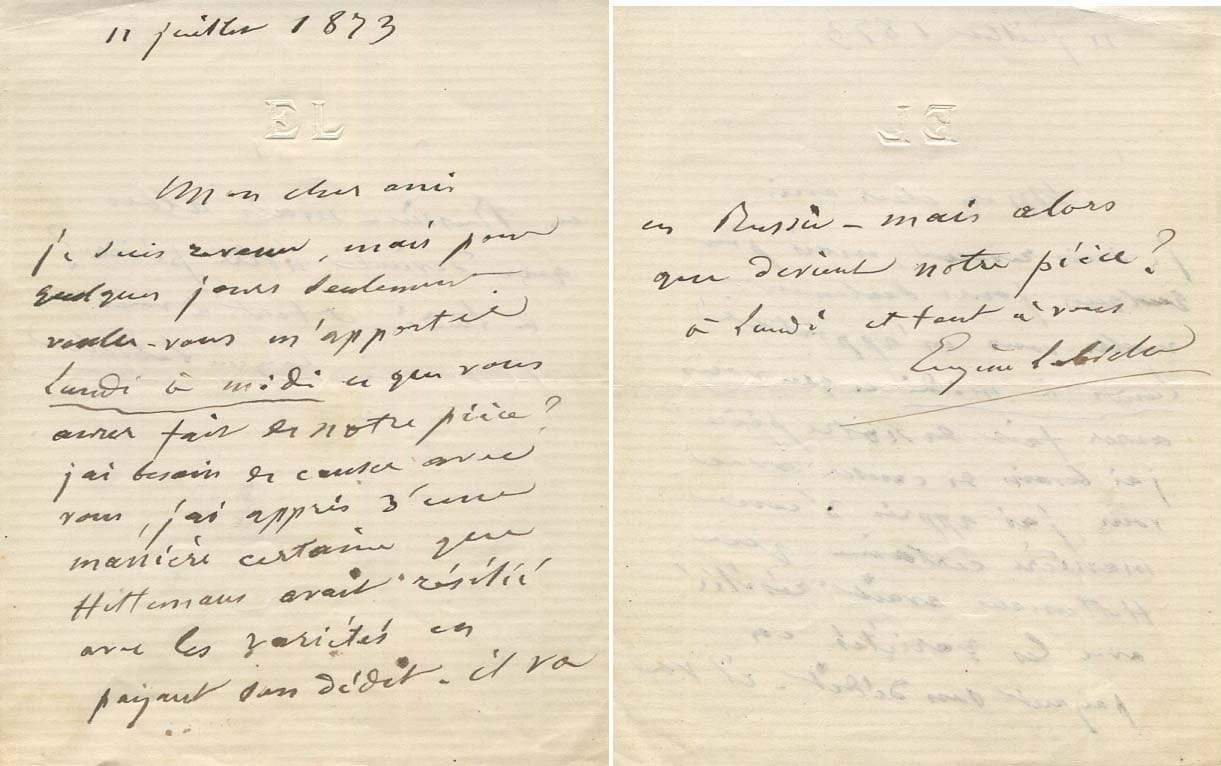 11 juillet 1873
EL
Mon cher ami
je suis revenu, mais pour
quelques jours seulement.
voulez-vous m'apporter
Lundi à midi ce que vous
avez fait de notre pièce?
j'ai besoin de causer avec
vous, j'ai appris d'une
manière certaine que
Hittemans avait résilié
avec les variétés en
payant son dédit - il va
en Russie - mais alors
que devient notre pièce?
à Lundi et tout à vous
Eugène Labiche